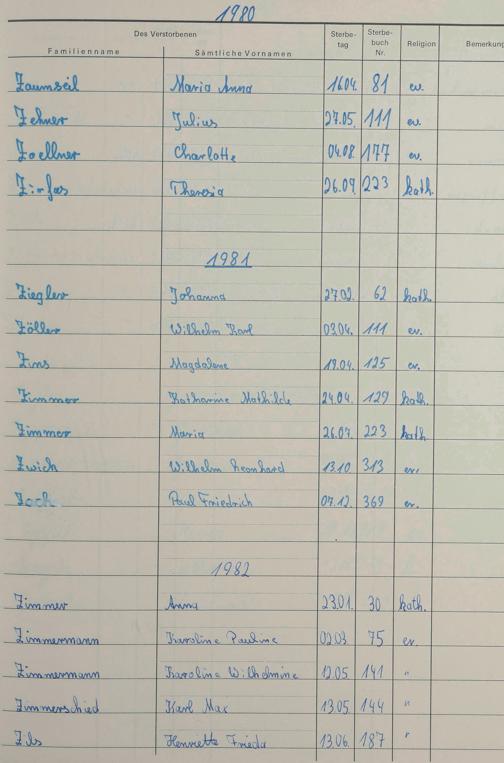 1980
Des Verstorbenen Sterbe- Sterbe-
Familienname Sämtliche Vornamen tag buch Religion Bemerkung
Nr.
Zaumseil Maria Anna 16.04. 81 ev.
Zehner Julius 27.05. 111 ev.
Zoellner Charlotte 04.08. 177 ev.
Zirfas Theresia 26.09. 223 kath.
1981
Ziegler Johanna 27.02. 62 kath.
Zöller Wilhelm Karl 03.04. 111 ev.
Zins Magdalene 19.04. 125 ev.
Zimmer Katharine Mathilde 24.04. 129 kath.
Zimmer Maria 26.07. 223 kath
Zwick Wilhelm Leonhard 13.10 313 ev.
Zoch Paul Friedrich 07.12. 369 ev.
1982
Zimmer Anna 23.01. 30 kath.
Zimmermann Karoline Pauline 02.03. 75 ev.
Zimmermann Karoline Wilhelmine 12.05. 141 "
Zimmerschied Karl Max 13.05. 144 "
Zils Henriette Frieda 13.06. 187 "